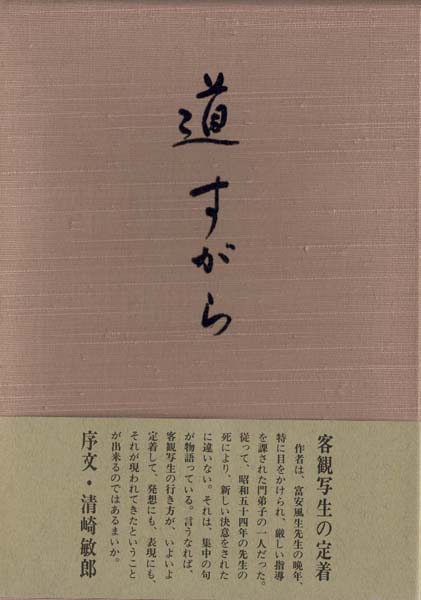 道すがら
客観写生の定着
作者は、富安風生先生の晩年、
特に目をかけられ、厳しい指導
を課された門弟子の一人だった。
従って、昭和五十四年の先生の
死により、新しい決意をされた
に違いない。それは、集中の句
が物語っている。言うなれば、
客観写生の行き方が、いよいよ
定着して、発想にも、表現にも、
それが現われてきたということ
が出来るのではあるまいか。
序文・清崎敏郎